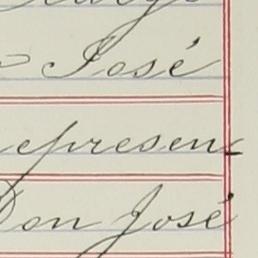 José
epresen-
Don José